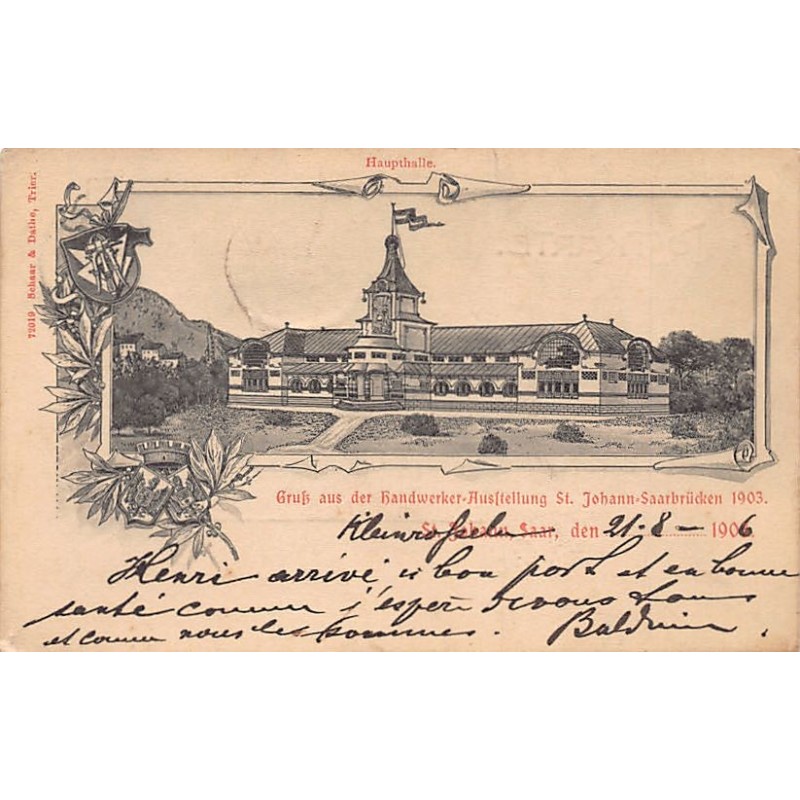 Haupthalle.
72019 Schaar & Dathe, Trier.
Gruß aus der Handwerker-Ausstellung St. Johann-Saarbrücken 1903.
Kleinrosseln
St. Johann-Saar, den 21-8- 1906
Henri arrivé à bon port et en bonne
santé comme j'espère de vous tous
et comme nous les sommes. Balduin.